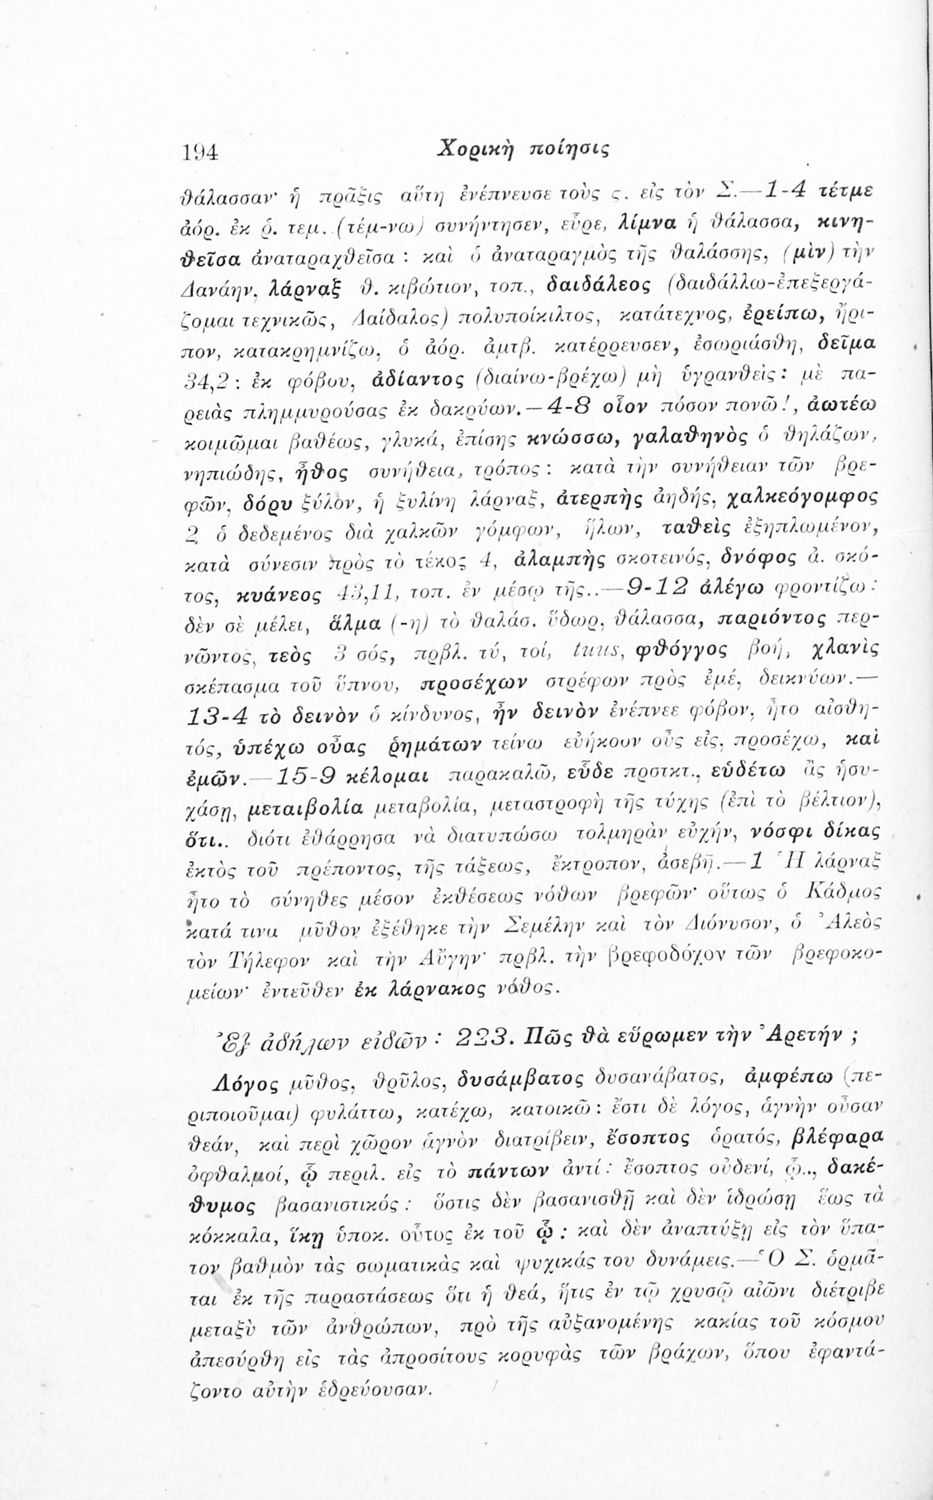 194 Χορικὴ ποίησις
θάλασσαν· ἡ πρᾶξις αὕτη ἐνέπνευσε τοὺς ς. εἰς τὸν Σ.—1-4 τέτμε
ἀόρ. ἐκ ῥ. τεμ. (τέμ-νω) συνήντησεν, εὗρε, λίμνα ἡ θάλασσα, κινη-
θεῖσα ἀναταραχθεῖσα : καὶ ὁ ἀναταραγμὸς τῆς θαλάσσης, (μὶν) τὴν
Δανάην, λάρναξ θ. κιβώτιον, τοπ., δαιδάλεος (δαιδάλλω-ἐπεξεργά-
ζομαι τεχνικῶς, Δαίδαλος) πολυποίκιλτος, κατάτεχνος, ἐρείπω, ἤρι-
πον, κατακρημνίζω, ὁ ἀόρ. ἀμτβ. κατέρρευσεν, ἐσωριάσθη, δεῖμα
34,2 : ἐκ φόβου, ἀδίαντος (διαίνω-βρέχω) μὴ ὑγρανθείς : μὲ πα-
ρειὰς πλημμυρούσας ἐκ δακρύων.—4-8 οἷον πόσον πονῶ!, ἀωτέω
κοιμῶμαι βαθέως, γλυκά, ἐπίσης κνώσσω, γαλαθηνὸς ὁ θηλάζων,
νηπιώδης, ἦθος συνήθεια, τρόπος : κατὰ τὴν συνήθειαν τῶν βρε-
φῶν, δόρυ ξύλον, ἡ ξυλίνη λάρναξ, ἀτερπὴς ἀηδής, χαλκεόγομφος
2 ὁ δεδεμένος διὰ χαλκῶν γόμφων, ἥλων, ταθεὶς ἐξηπλωμένον,
κατὰ σύνεσιν πρὸς τὸ τέκος 4, ἀλαμπὴς σκοτεινός, δνόφος ἀ. σκό-
τος, κυάνεος 43,11, τοπ. ἐν μέσῳ τῆς..—9-12 ἀλέγω φροντίζω :
δὲν σὲ μέλει, ἅλμα (-η) τὸ θαλάσ. ὕδωρ, θάλασσα, παριόντος περ-
νῶντος, τεὸς 3 σός, πρβλ. τύ, τοί, tuus, φθόγγος βοή, χλανὶς
σκέπασμα τοῦ ὕπνου, προσέχων στρέφων πρὸς ἐμέ, δεικνύων.—
13-4 τὸ δεινὸν ὁ κίνδυνος, ἦν δεινὸν ἐνέπνεε φόβον, ἦτο αἰσθη-
τός, ὑπέχω οὖας ῥημάτων τείνω εὐήκοον οὖς εἰς, προσέχω, καὶ
ἐμῶν.—15-9 κέλομαι παρακαλῶ, εὗδε προτκτ., εὑδέτω ἂς ἡσυ-
χάσῃ, μεταιβολία μεταβολία, μεταστροφὴ τῆς τύχης (ἐπὶ τὸ βέλτιον),
ὅτι.. διότι ἐθάρρησα νὰ διατυπώσω τολμηρὰν εὐχήν, νόσφι δίκας
ἐκτὸς τοῦ πρέποντος, τῆς τάξεως, ἔκτροπον, ἀσεβῆ.—1 Ἡ λάρναξ
ἦτο τὸ σύνηθες μέσον ἐκθέσεως νόθων βρεφῶν· οὕτως ὁ Κάδμος
κατά τινα μῦθον ἐξέθηκε τὴν Σεμέλην καὶ τὸν Διόνυσον, ὁ Ἀλεὸς
τὸν Τήλεφον καὶ τὴν Αὔγην· πρβλ. τὴν βρεφοδόχον τῶν βρεφοκο-
μείων· ἐντεῦθεν ἐκ λάρνακος νόθος.
Ἐξ ἀδήλων εἰδῶν : 223. Πῶς θὰ εὕρωμεν τὴν Ἀρετήν ;
Λόγος μῦθος, θρῦλος, δυσάμβατος δυσανάβατος, ἀμφέπω (πε-
ριποιοῦμαι) φυλάττω, κατέχω, κατοικῶ : ἔστι δὲ λόγος, ἁγνὴν οὖσαν
θεάν, καὶ περὶ χῶρον ἁγνὸν διατρίβειν, ἔσοπτος ὁρατός, βλέφαρα
ὀφθαλμοί, ᾧ περιλ. εἰς τὸ πάντων ἀντί : ἔσοπτος οὐδενί, ᾧ.., δακέ-
θυμος βασανιστικός : ὅστις δὲν βασανισθῇ καὶ δὲν ἱδρώσῃ ἕως τὰ
κόκκαλα, ἵκῃ ὑποκ. οὗτος ἐκ τοῦ ᾧ : καὶ δὲν ἀναπτύξῃ εἰς τὸν ὕπα-
τον βαθμὸν τὰς σωματικὰς καὶ ψυχικάς του δυνάμεις.—Ὁ Σ. ὁρμᾶ-
ται ἐκ τῆς παραστάσεως ὅτι ἡ θεά, ἥτις ἐν τῷ χρυσῷ αἰῶνι διέτριβε
μεταξὺ τῶν ἀνθρώπων, πρὸ τῆς αὐξανομένης κακίας τοῦ κόσμου
ἀπεσύρθη εἰς τὰς ἀπροσίτους κορυφὰς τῶν βράχων, ὅπου ἐφαντά-
ζοντο αὐτὴν ἑδρεύουσαν.